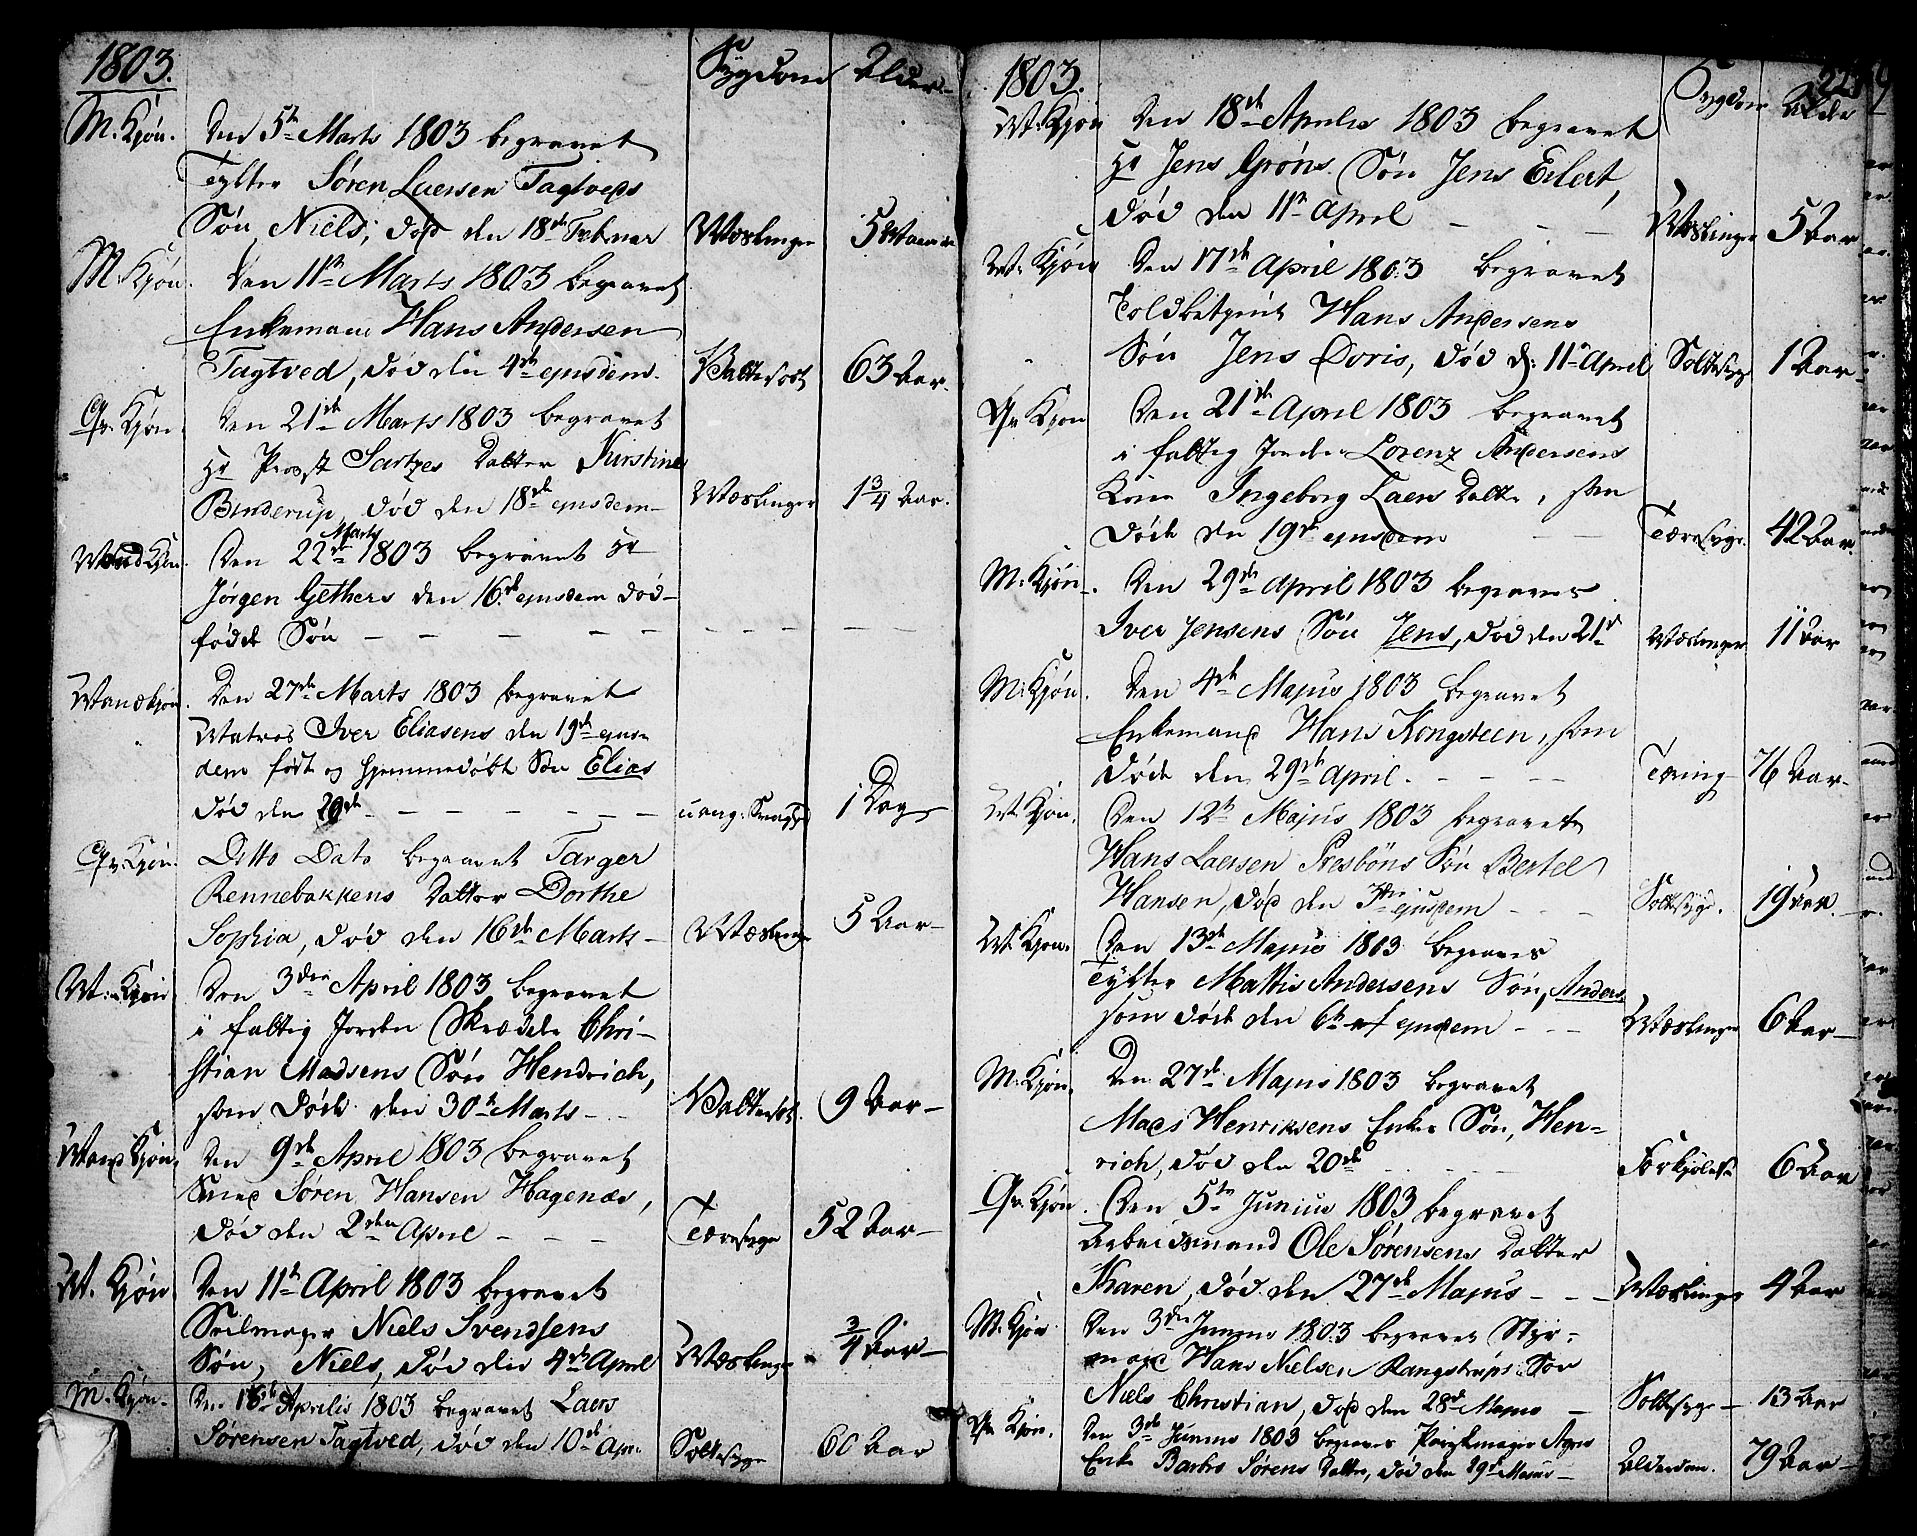 1803.
Sygdom Alder
M. Kjøn. Den 5te Marts 1803 begravet
Tyfter Søren Laersen Tagtveds
Søn Niels, død den 18de Februar Mæslinger 5
M. Kjøn. Den 11te Marts 1803 begravet
Enkemand Hans Andersen
Tagtved, død den 4de ejusdem. 63 Aar.
Qv. Kjøn. Den 21de Marts 1803 begravet
Hr Provst Datter Kirstine
Binderup, død den 18de ejusdem Mæslinger 1 3/4 Aar.
Mand Kjøn. Den 22de Marts 1803 begravet Hr
Jørgen Gethers den 16de ejusdem død-
fødde Søn
Mandkjøn. Den 27de Marts 1803 begravet
Matros Iver Eliasens den 19de ejus-
dem født og hjemmedøbt Søn Elias
død den 20de 1 Dag
Qv. Kjøn. Ditto Dato begravet Targer
Rennebakkens Datter Dorthe
Sophia, død den 16de Marts Mæslinger 5 Aar
M. Kjøn Den 3die April 1803 begravet
i fattig Jorden Skrædder Chri-
stian Madsens Søn Hendrich,
som døde den 30te Marts 9 Aar
Mand Kjøn. Den 9de April 1803 begravet
Smed Søren Hansen Hagenæs,
død den 2den April Tæresyge 52 Aar
M. Kjøn Den 11te April 1803 begravet
Seilmager Niels Svendsens
Søn, Niels, død den 4de April Mæslinger 3/4 Aar
M. Kjøn. Den Aprilis 1803 begravet Laers
Sørensen Tagtved, død den 10de Apr. Sottesyge 60 Aar
1803.
Sygdom Alder
M. Kjøn Den 18de Aprilis 1803 begravet
Hr Jens Grøns Søn Jens Eilert,
død den 11te April Mæslinger 5 Aar
M. Kjøn Den 17de April 1803 begravet
Toldbetjent Hans Andersens
Søn Jens Doris, død d: 11te April Sottesyge 1 Aar
Qv Kjøn Den 21de April 1803 begravet
i fattig Jorden Lorenz Andersens
Kone Ingeborg Laers Datter, som
døde den 19de ejusdem Tæresyge. 42 Aar.
M: Kjøn. Den 29de April 1803 begravet
Iver Jensens Søn Jens, død den 21de Mæslinger 11 Aar
M: Kjøn. Den 4de Majus 1803 begravet
Enkemand Hans Kongsteen, som
døde den 29de April. Tæring 76 Aar
M. Kjøn. Den 12te Majus 1803 begravet
Hans Laersen Presbøns Søn Bertel
Hansen, død den 3die ejusdem Sottesyge. 19 Aar.
M. Kjøn. Den 13de Majus 1803 begravet
Tyfter Mattis Andersens Søn, Anders
som døde den 6te ejusdem Mæslinger 6 Aar
M. Kjøn. Den 27de Majus 1803 begravet
Mads Henriksens Enkes Søn, Hen-
rich, død den 20de Forkjølelse 6 Aar
Qv. Kjøn. Den 5te Junius 1803 begravet
Arbeidsmand Ole Sørensens Datter
Karen, død den 27de Majus Mæslinger 4 Aar
M. Kjøn Den 3die Junius 1803 begravet Styr-
mand Hans Nielsen Rangstrups Søn
Niels Christian, død den 28de Majus Sottesyge 13 Aar
Qv. Kjøn. Den 3die Junius 1803 begravet
Enke Barbro Sørens Datter, død den 29de Majus Alderdom. 79 Aar